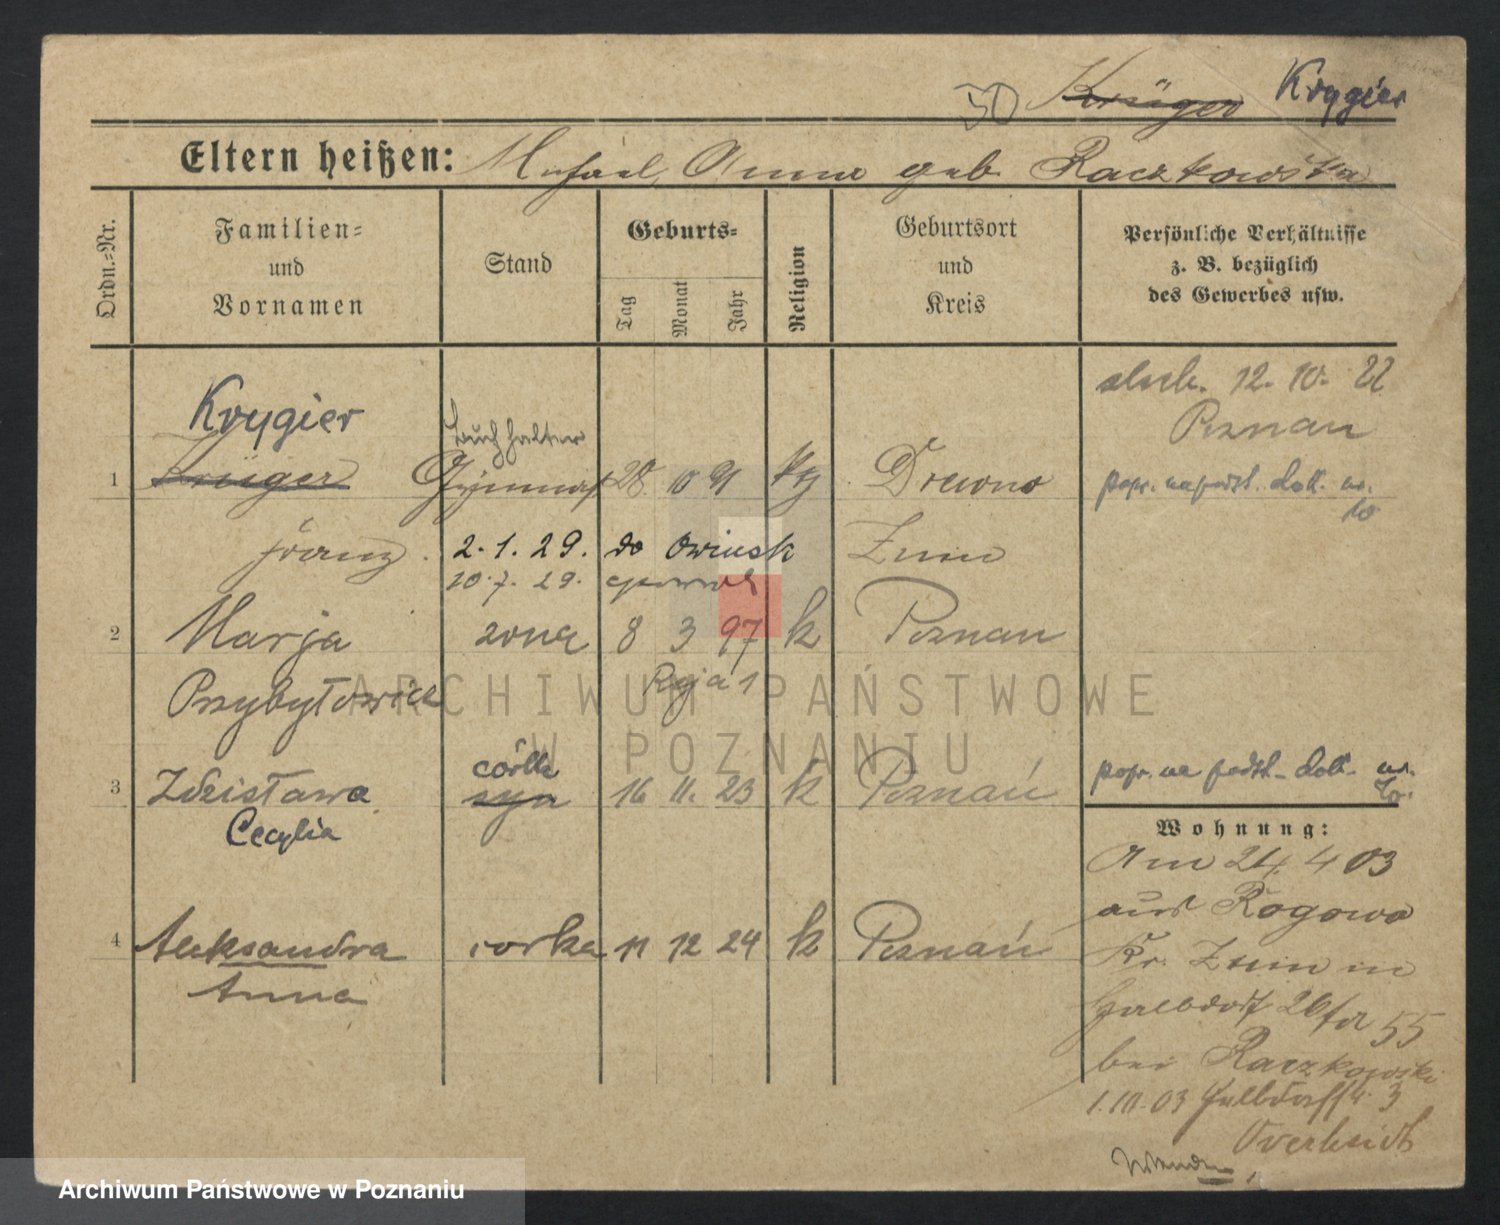 50 Krüger Krygier
Eltern heißen: Michael, Anna geb. Raczkowska
Ordn.-Nr.
Familien-
und
Vornamen
Stand
Geburts-
Tag
Monat
Jahr
Religion
Geburtsort
und
Kreis
Persönliche Verhältnisse
z. B. bezüglich
des Gewerbes usw.
12. 10. 22
Poznan
Krygier
Buchhalter
1 Krüger 28 10 91 Drewno
popr. na podst. dok. w.
Franz. 2. 1. 29. do Owinsk Znin
10. 7. 29.
2 Marja zona 8 3 97 k Poznan
Przybyłowicz
3 Zdzisława córka 16 11. 23 k Poznań
syn
popr. na podst. dok. w.
Cecylia
Wohnung:
Am 24. 4 03
aus Rogowo
4 Aleksandra corka 11 12 24 k Poznań
Kr. Znin in
Anna
Halbdorf 26 55
bei Raczkowski
1. 10. 03 Halbdorfstr. 3
Wenden
ARCHIWUM PAŃSTWOWE
W POZNANIU
Archiwum Państwowe w Poznaniu